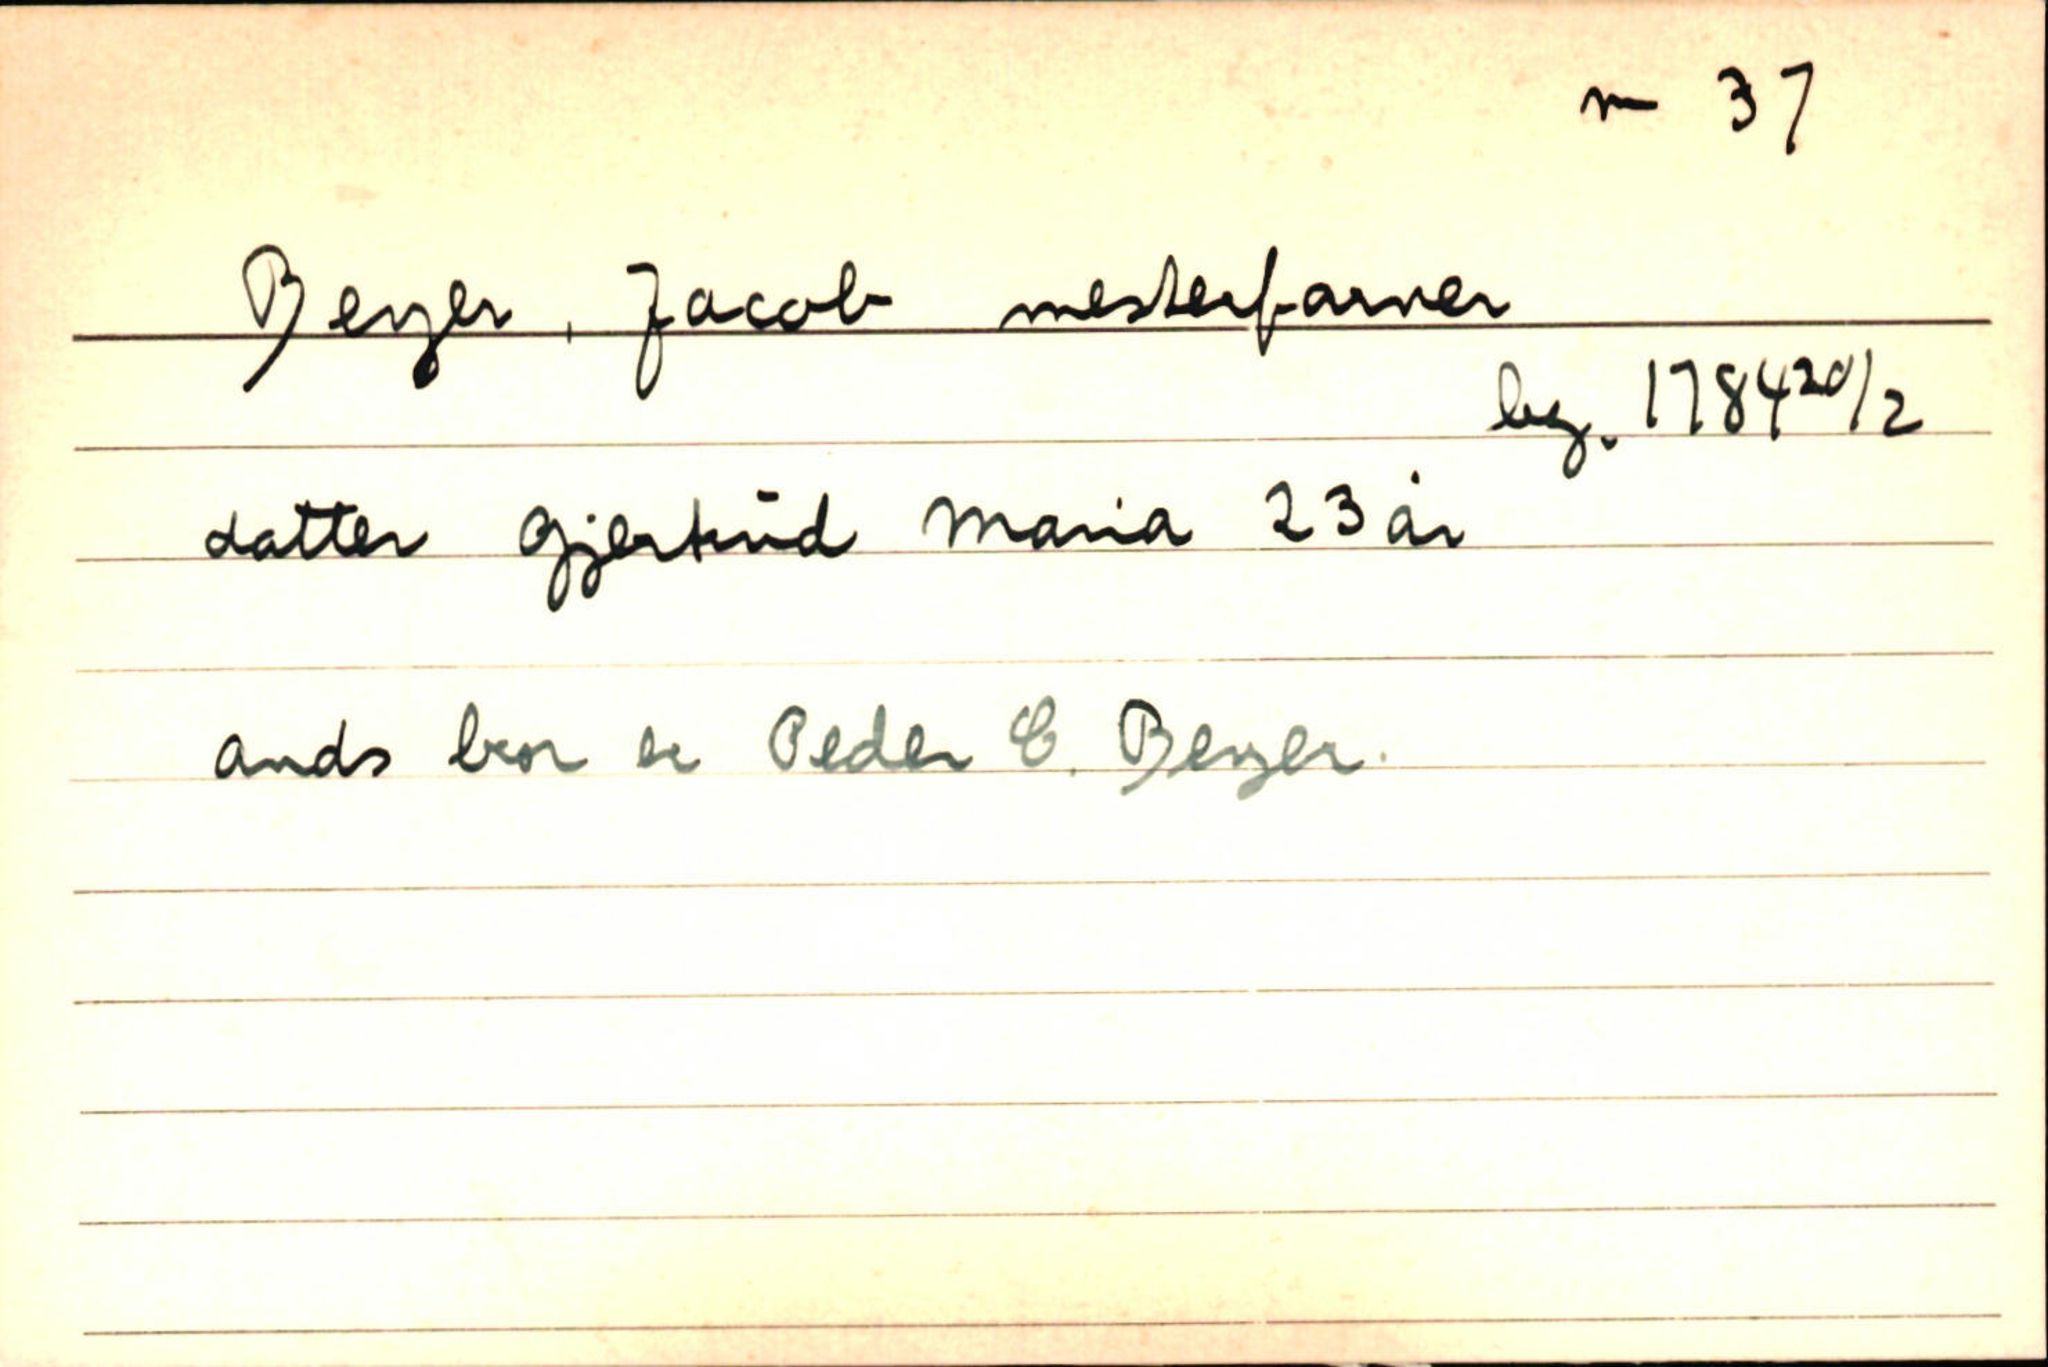 m 37
Beyer, Jacob mesterfarver
beg. 1784 20/2
datter Gjertrud Maria 23 år
ands bror er Peder C. Beyer.